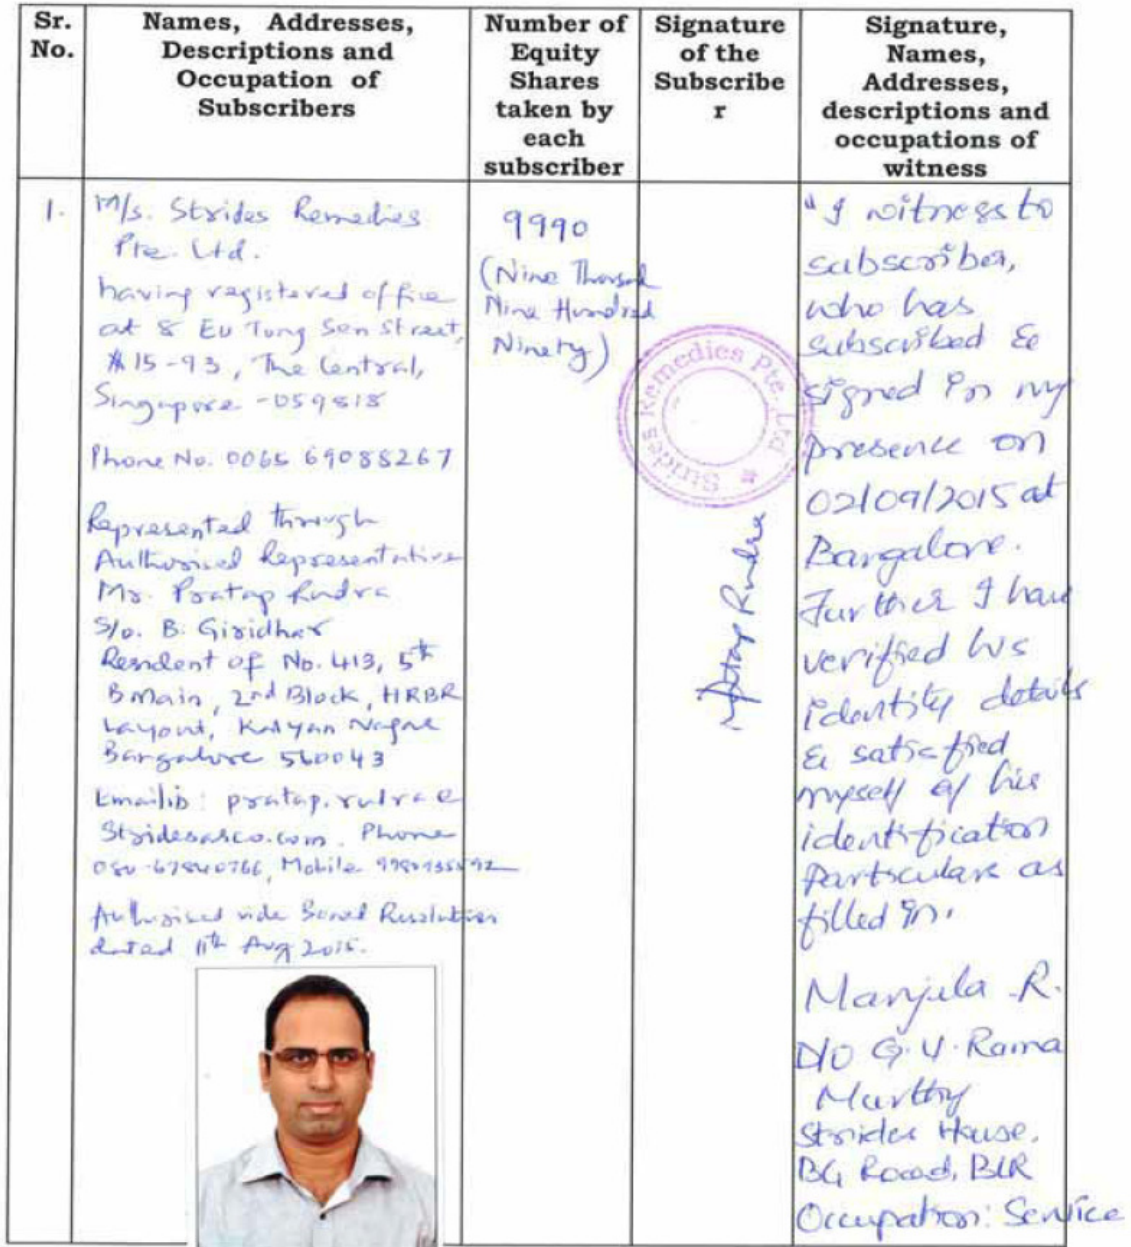 Sr.
No.
Names, Addresses,
Descriptions and
Occupation of
Subscribers
Number of
Equity
Shares
taken by
each
subscriber
Signature
of the
Subscribe
r
Signature,
Names,
Addresses,
descriptions and
occupations of
witness
1.
M/s. Strides Remedies
Pte. Ltd.
having registered office
at 8 Eu Tong Sen Street,
#15-93, The Central,
Singapore -059818
Phone No. 0065 69088267
Represented through
Authorised Representative
Mr. Pratap Rudra
S/o. B. Giridhar
Resident of No. 413, 5th
B Main, 2nd Block, HRBR
Layout, Kalyan Nagar
Bangalore 560043
Email ID: pratap.rudra@
Stridesarco.com. Phone
080-67840766, Mobile
Authorised vide Board Resolution
dated 11th Aug 2015.
9990
(Nine Thousand
Nine Hundred
Ninety)
Strides Remedies Pte. Ltd.
Pratap Rudra
"I witness to
subscriber,
who has
subscribed &
signed in my
presence on
02/09/2015 at
Bangalore.
Further I have
verified his
identity details
& satisfied
myself of his
identification
particulars as
filled in.
Manjula R.
D/O G.V. Rama
Murthy
Strides House,
BG Road, BLR
Occupation: Service